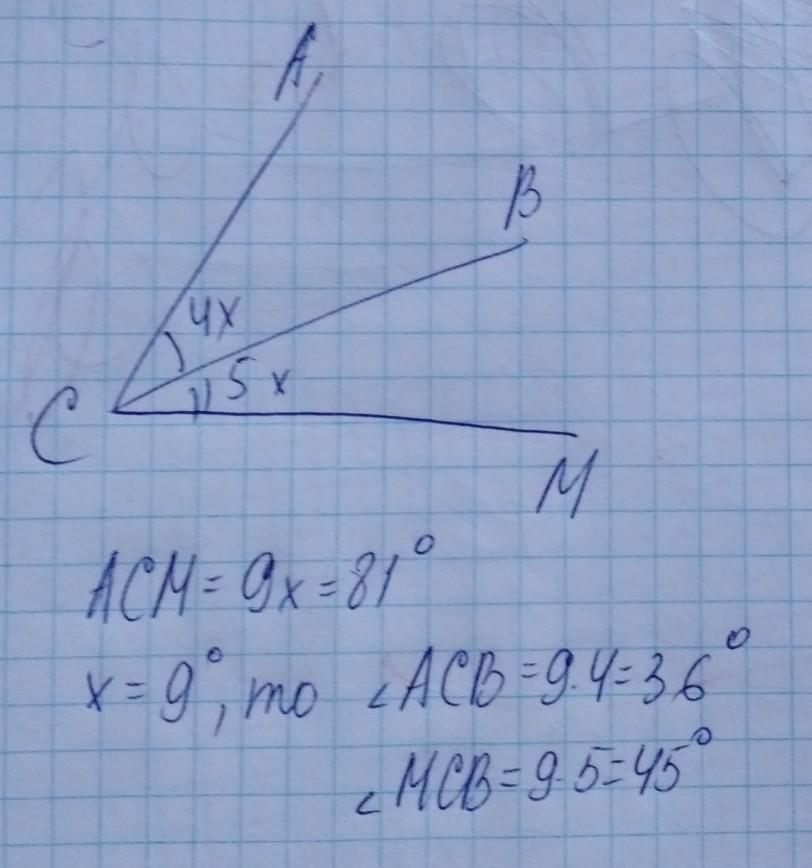 A
B
4x
5x
C
M
ACM = 9x = 81°
x = 9°, то ∠ACB = 9·4 = 36°
∠MCB = 9·5 = 45°